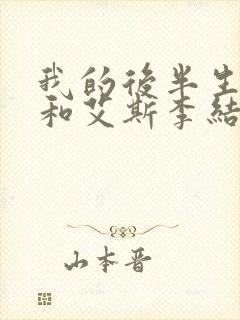 我的後半生
和艾斯李結
山本晋